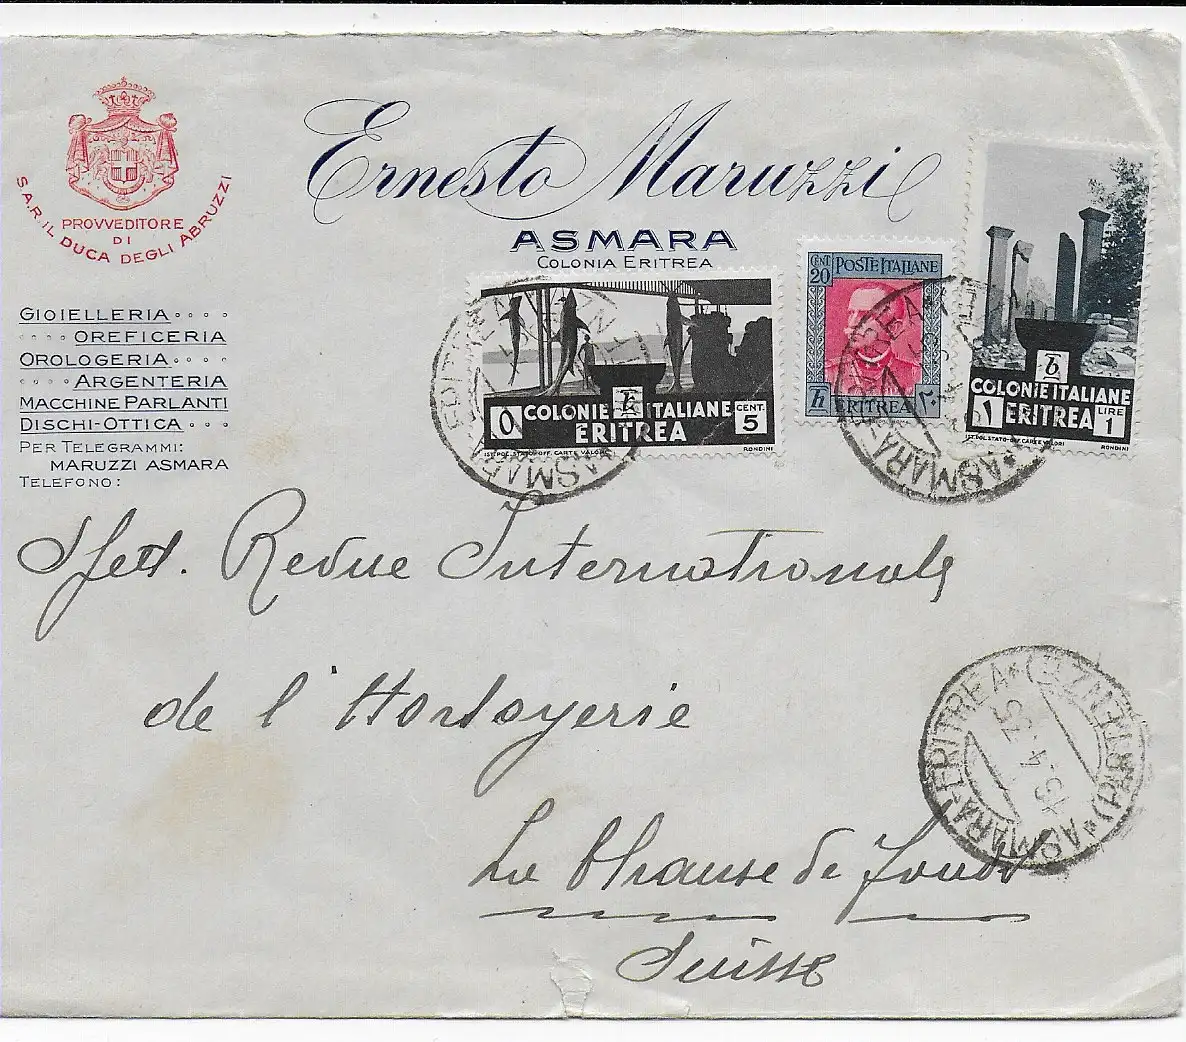 Ernesto Maruzzi
ASMARA
COLONIA ERITREA
PROVVEDITORE
DI
S.A.R. IL DUCA DEGLI ABRUZZI
GIOIELLERIA
OREFICERIA
OROLOGERIA
ARGENTERIA
MACCHINE PARLANTI
DISCHI-OTTICA
PER TELEGRAMMI:
MARUZZI ASMARA
TELEFONO:
COLONIE ITALIANE
ERITREA
CENT
5
IST. POL. STATO-OFF. CARTE VALORI
RONDINI
CENT
20
POSTE ITALIANE
ERITREA
٢٠
COLONIE ITALIANE
ERITREA
LIRE
1
IST. POL. STATO-OFF. CARTE VALORI
RONDINI
Spett. Revue Internationale
de l'Horlogerie
La Chause de Fonds
Suisse
ASMARA-ERITREA
(PARTENZE)
13-4-35